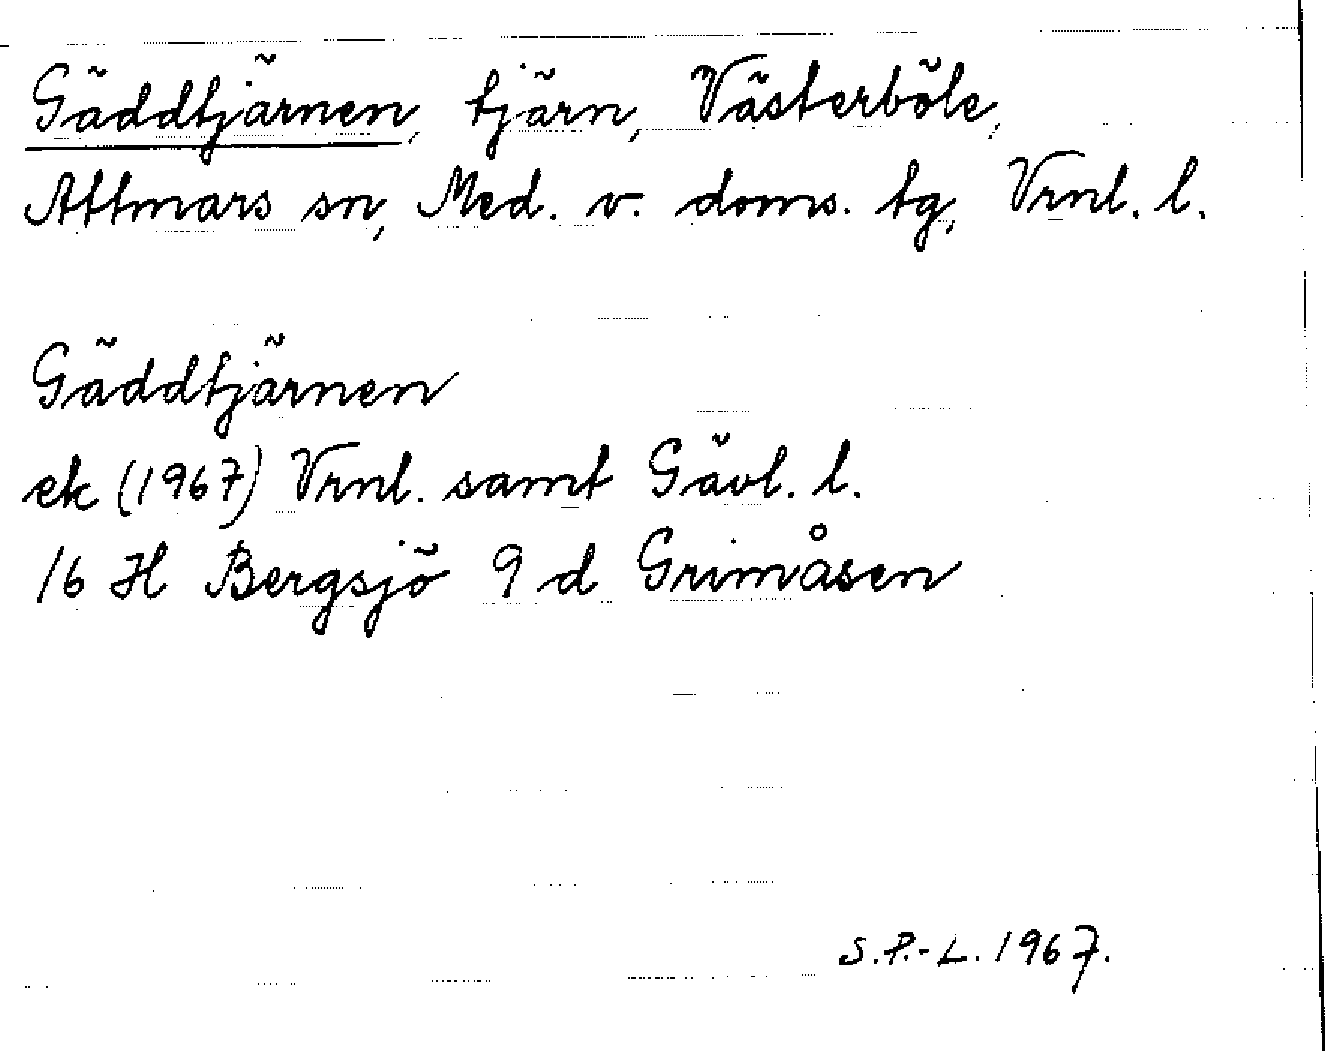 Gäddtjärnen, tjärn, Västerböle,
Attmars sn, Med. v. doms. tg, Vrnl. l.
Gäddtjärnen
ek (1967) Vrnl. samt Gävl. l.
16 H Bergsjö 9 d Grimåsen
S.P.-L. 1967.